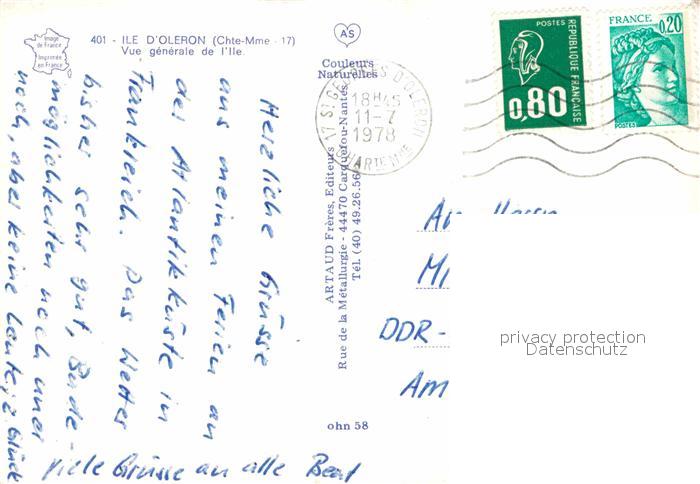 401 - ILE D'OLERON (Chte-Mme - 17)
Vue générale de l'Ile.
Image de France
Imprimée en France
AS
Couleurs
Naturelles
POSTES
REPUBLIQUE FRANÇAISE
0,80
FRANCE
0,20
POSTES
17 ST GEORGES D'OLERON
18H45
11-7
1978
CHARTE MME
Herzliche Grüsse
aus meinen Ferien an
der Atlantikküste in
Frankreich. Das Wetter
bisher sehr gut, Bade-
möglichkeiten noch und
noch, aber keine Leute, z. Glück
viele Grüsse an alle Beat
ARTAUD Frères, Editeurs
Rue de la Métallurgie - 44470 Carquefou-Nantes
Tél. (40) 49.26.56
ohn 58
DDR-
Am
privacy protection
Datenschutz